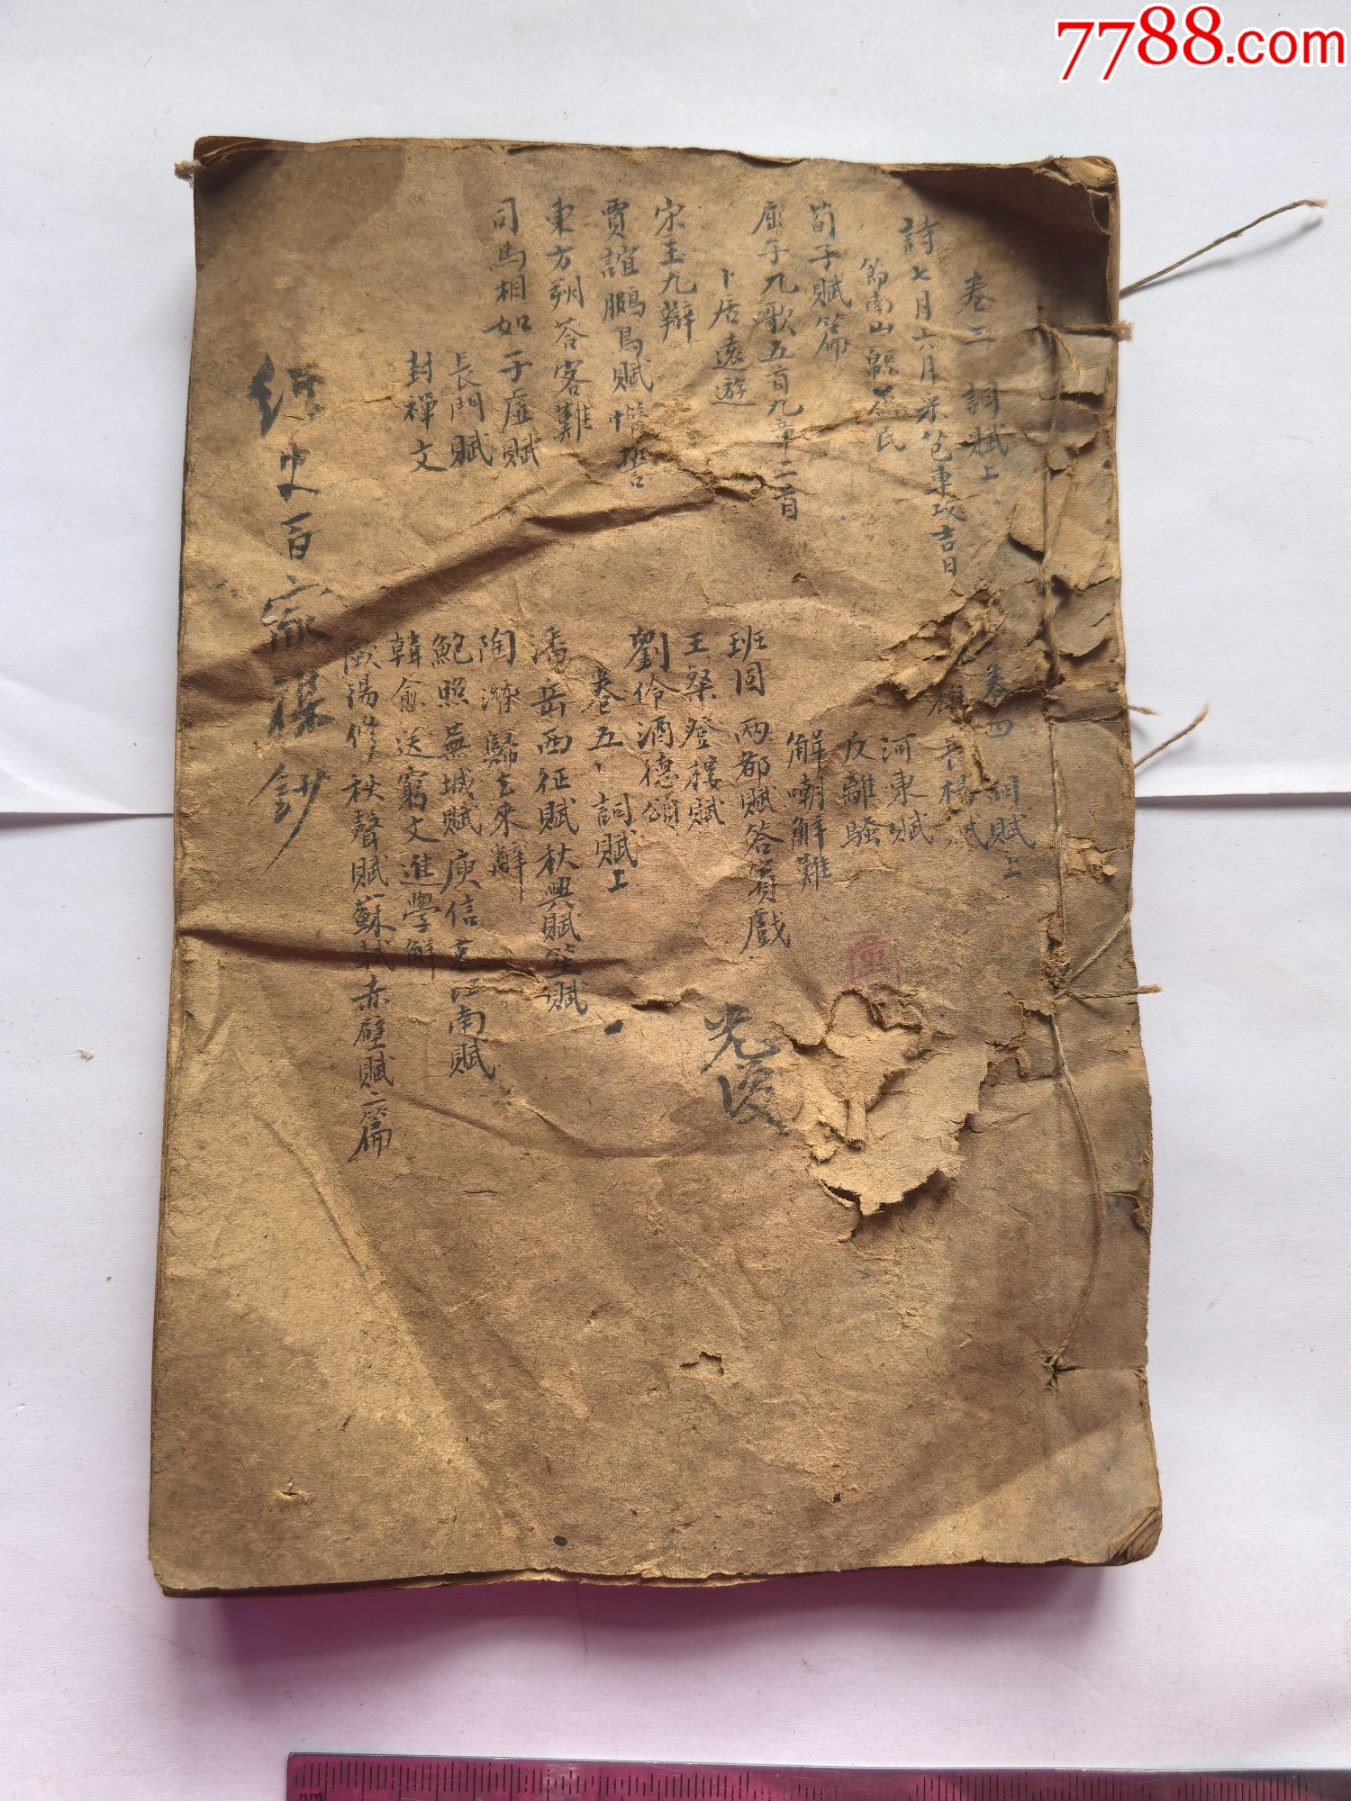 7788.com
卷三 詞賦上
詩七月六月采芑車攻吉日
節南山 民
荀子賦篇
屈子九歌五首九章二首
卜居遠遊
宋玉九辯
賈誼鵩鳥賦惜誓
東方朔荅客難
司馬相如子虛賦
長門賦
封禪文
卷四 詞賦上
雄 長楊賦
河東賦
反離騷
解嘲解難
班固 兩都賦答賓戲
王粲登樓賦
劉伶酒德頌
卷五 詞賦上
潘岳西征賦秋興賦笙賦
陶潛歸去來辭
鮑照蕪城賦 庾信哀江南賦
韓愈送窮文進學解
歐陽修秋聲賦 蘇軾赤壁賦二篇
經史百家雜鈔
光俊